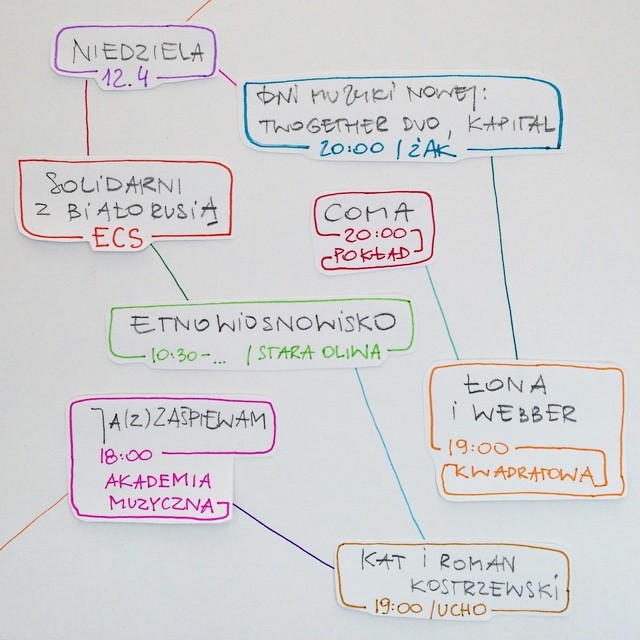 NIEDZIELA
12.4
DNI MUZYKI NOWEJ:
TWOGETHER DUO, KAPITAL
20:00 / ŻAK
SOLIDARNI
Z BIAŁORUSIĄ
ECS
COMA
20:00
POKŁAD
ETNOWIOSNOWISKO
10:30-... / STARA OLIWA
ŁONA
I WEBBER
19:00
KWADRATOWA
JA(Z)ZAŚPIEWAM
18:00
AKADEMIA
MUZYCZNA
KAT I ROMAN
KOSTRZEWSKI
19:00 / UCHO